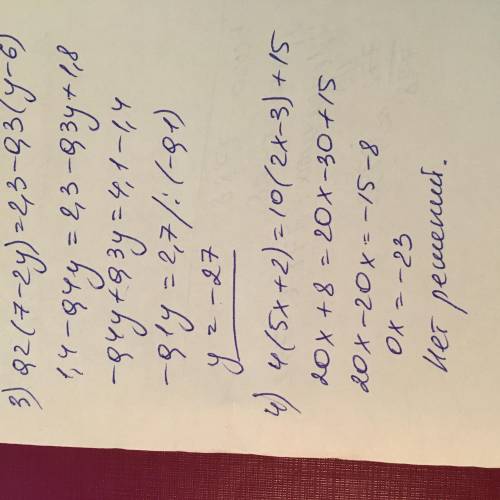 3) 0,2(7-2y)=2,3-0,3(y-6)
1,4-0,4y=2,3-0,3y+1,8
-0,4y+0,3y=4,1-1,4
-0,1y=2,7 /:(-0,1)
y=-27
4) 4(5x+2)=10(2x-3)+15
20x+8=20x-30+15
20x-20x=-15-8
0x=-23
Нет решений.